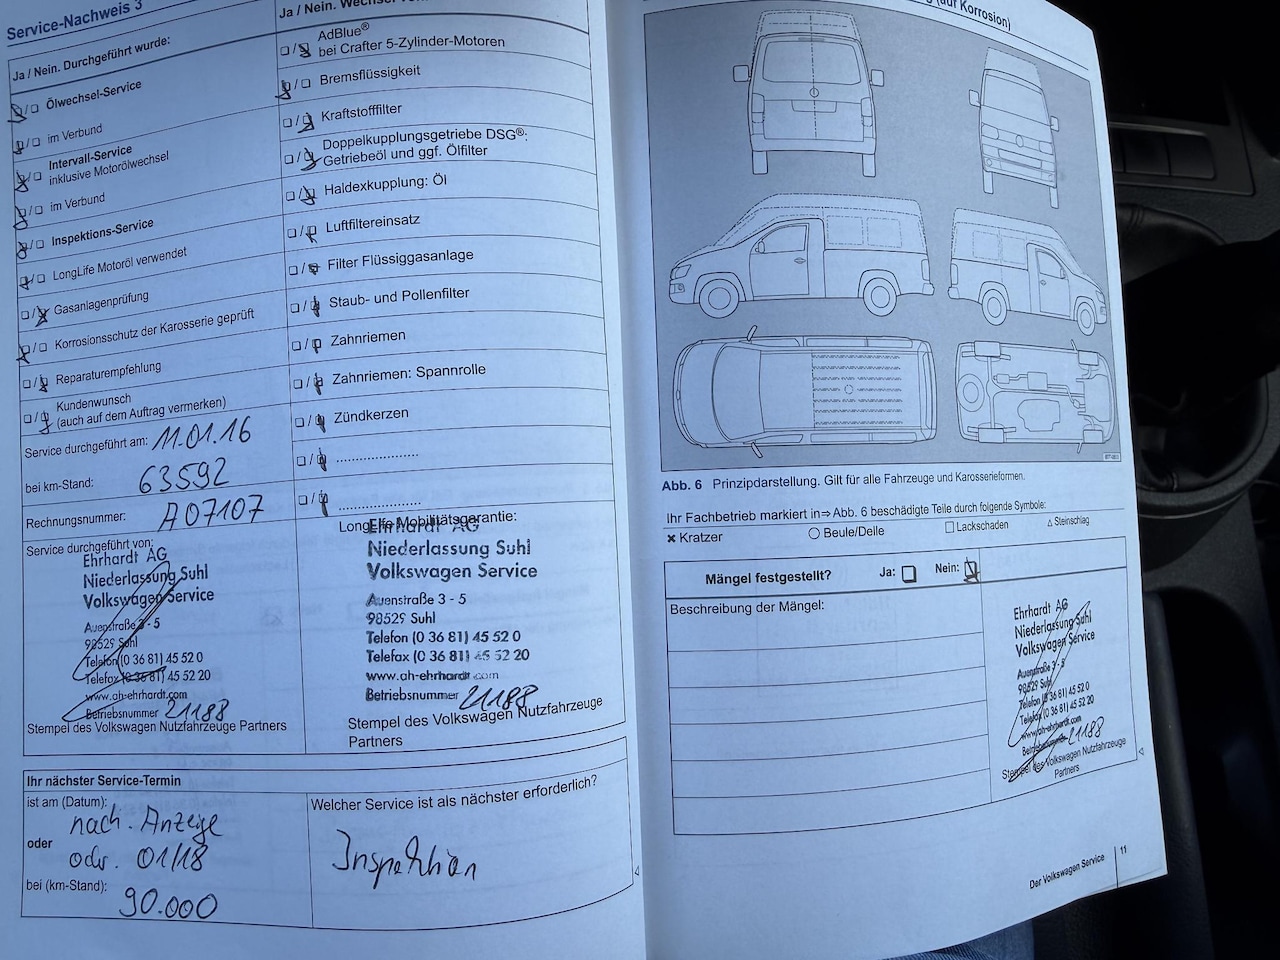 Service-Nachweis 3
Ja / Nein. Durchgeführt wurde:
Ölwechsel-Service
im Verbund
Intervall-Service
inklusive Motorölwechsel
im Verbund
Inspektions-Service
LongLife Motoröl verwendet
Gasanlagenprüfung
Korrosionsschutz der Karosserie geprüft
Reparaturempfehlung
Kundenwunsch
(auch auf dem Auftrag vermerken)
Service durchgeführt am: 11.01.16
bei km-Stand: 63592
Rechnungsnummer: A07107
Service durchgeführt von:
Ehrhardt AG
Niederlassung Suhl
Volkswagen Service
Auenstraße 3 - 5
98529 Suhl
Telefon (0 36 81) 45 52 0
Telefax (0 36 81) 45 52 20
www.ah-ehrhardt.com
Betriebsnummer 21188
Stempel des Volkswagen Nutzfahrzeuge Partners
Ja / Nein. Wechsel
AdBlue®
bei Crafter 5-Zylinder-Motoren
Bremsflüssigkeit
Kraftstofffilter
Doppelkupplungsgetriebe DSG®:
Getriebeöl und ggf. Ölfilter
Haldexkupplung: Öl
Luftfiltereinsatz
Filter Flüssiggasanlage
Staub- und Pollenfilter
Zahnriemen
Zahnriemen: Spannrolle
Zündkerzen
LongLife Mobilitätsgarantie:
Ehrhardt AG
Niederlassung Suhl
Volkswagen Service
Auenstraße 3 - 5
98529 Suhl
Telefon (0 36 81) 45 52 0
Telefax (0 36 81) 45 52 20
www.ah-ehrhardt.com
Betriebsnummer 21188
Stempel des Volkswagen Nutzfahrzeuge
Partners
Ihr nächster Service-Termin
ist am (Datum):
nach. Anzeige
oder
odr. 01/18
bei (km-Stand):
90.000
Welcher Service ist als nächster erforderlich?
Inspektion
(auf Korrosion)
Abb. 6 Prinzipdarstellung. Gilt für alle Fahrzeuge und Karosserieformen.
Ihr Fachbetrieb markiert in⇒ Abb. 6 beschädigte Teile durch folgende Symbole:
✖ Kratzer ○ Beule/Delle □ Lackschaden △ Steinschlag
Mängel festgestellt? Ja: Nein:
Beschreibung der Mängel:
Ehrhardt AG
Niederlassung Suhl
Volkswagen Service
Auenstraße 3 - 5
98529 Suhl
Telefon (0 36 81) 45 52 0
Telefax (0 36 81) 45 52 20
www.ah-ehrhardt.com
Betriebsnummer 21188
Stempel des Volkswagen Nutzfahrzeuge
Partners
Der Volkswagen Service 11